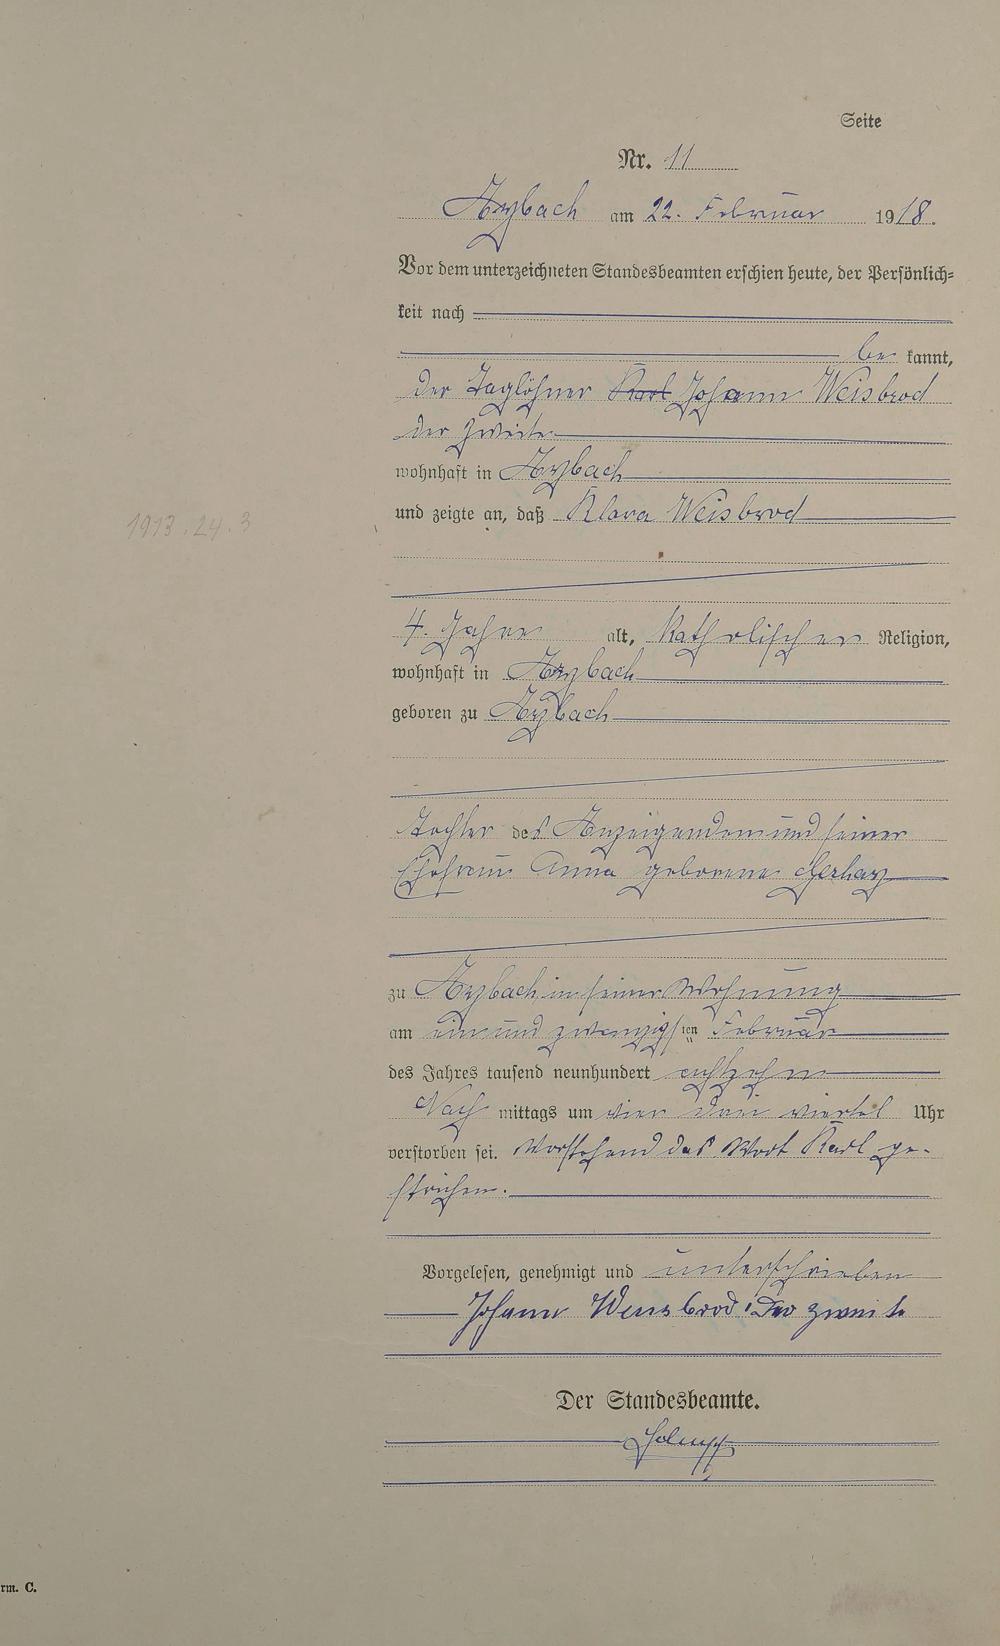 Seite
Nr. 11
Arzbach am 22. Februar 1918.
Vor dem unterzeichneten Standesbeamten erschien heute, der Persönlich-
keit nach
be kannt,
der Taglöhner Karl Johann Weisbrod
der Zweite
wohnhaft in Arzbach
und zeigte an, daß Klara Weisbrod
1913.24.3
4. Jahre alt, katholischer Religion,
wohnhaft in Arzbach
geboren zu Arzbach
Tochter des Anzeigenden und seiner
Ehefrau Anna geborene
zu Arzbach in seiner Wohnung
am ein und zwanzigsten Februar
des Jahres tausend neunhundert achtzehn
Nach mittags um vier drei viertel Uhr
verstorben sei. Vorstehend das Wort Karl ge-
strichen.
Vorgelesen, genehmigt und unterschrieben
Johann Weisbrod Der zweite
Der Standesbeamte.
rm. C.